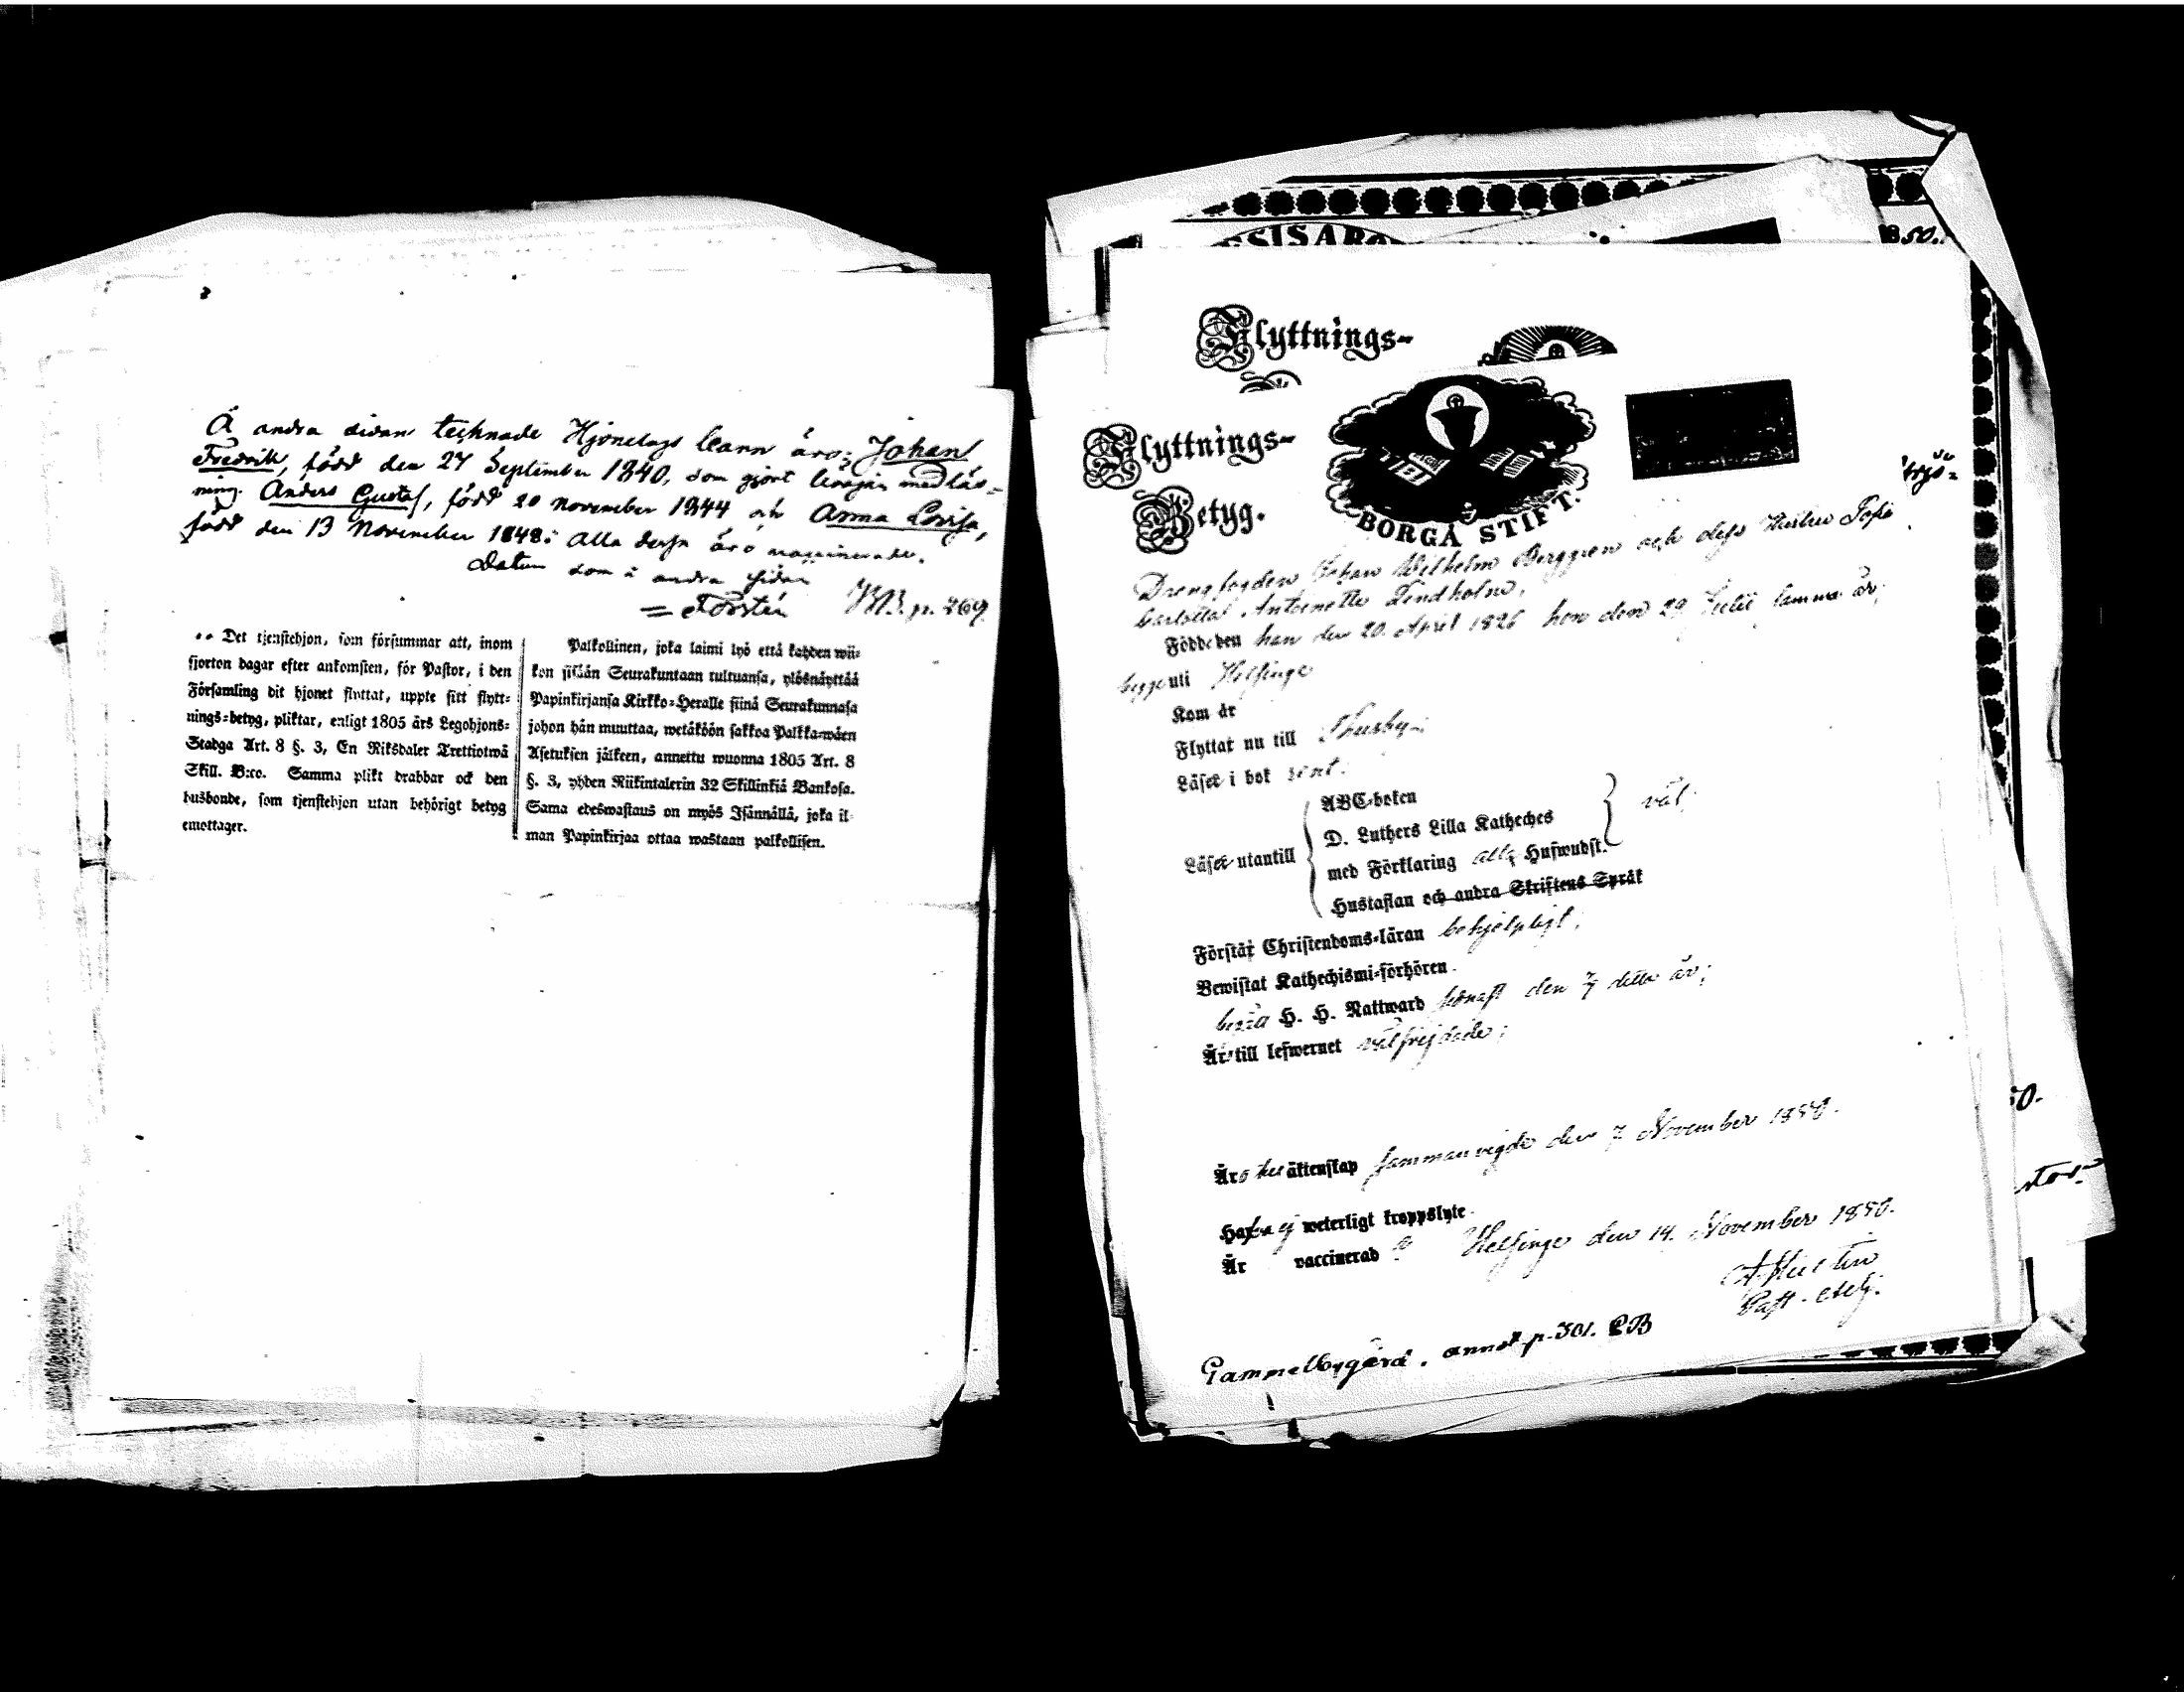 Å andra sidan tecknade Hjonelags barn äro: Johan
Fredrik, född den 27 September 1840, som gjort början med läs-
ning. Anders Gustaf, född 20 November 1844 och Anna Lovisa,
född den 13 November 1848: Alla dessa äro vaccinerade.
Datum som å andra sidan
Forstén p. 269
Det tjenstehjon, som försummar att, inom
fjorton dagar efter ankomsten, för Pastor, i den
Församling dit hjonet flyttat, uppte sitt flytt-
nings-betyg, pliktar, enligt 1805 års Legohjons-
Stadga Art. 8 §. 3, En Riksdaler Trettiotwå
Skill. B:co. Samma plikt drabbar ock den
husbonde, som tjenstehjon utan behörigt betyg
emottager.
Palkollinen, joka laimi lyö että kahden wii-
kon sisään Seurakuntaan tultuansa, ylösnäyttää
Papinkirjansa Kirkko-Heralle siinä Seurakunnasa
johon hän muuttaa, wetäköön sakkoa Palkka-wäen
Asetuksen jälkeen, annettu wuonna 1805 Art. 8
§. 3, yhden Riikintalerin 32 Skillinkiä Bankosa.
Sama edeswastaus on myös Isännällä, joka il-
man Papinkirjaa ottaa wastaan palkollisen.
SSISARO
850.
Flyttnings-
Flyttnings-
Betyg.
BORGÅ STIFT.
Drengfogden Johan Wilhelm Berggren och dess Hustru Sofia
Carlotta Antoinette Lindholm,
Födde den han den 20. April 1826 hon den 29 Julii samma år;
begge uti Helsinge
Kom år
Flyttat nu till Thusby;
Läset i bok rent.
ABC-boken
D. Luthers Lilla Katheches
Läset utantill
med Förklaring alla Hufwudst. väl;
Hustaflan och andra Skriftens Språk
Förstår Christendoms-läran behjelpligt;
Bewistat Kathechismi-förhören
begå H. H. Nattward senast den 7 detta år;
Är till lefwernet välfrejdade;
Äro till äktenskap sammanvigde den 7 November 1850.
Hafva ej weterligt kroppslyte.
Är vaccinerad
Helsinge den 14. November 1850.
Past. Adj.
Gammelbygård. annot. p. 301. CB
50.